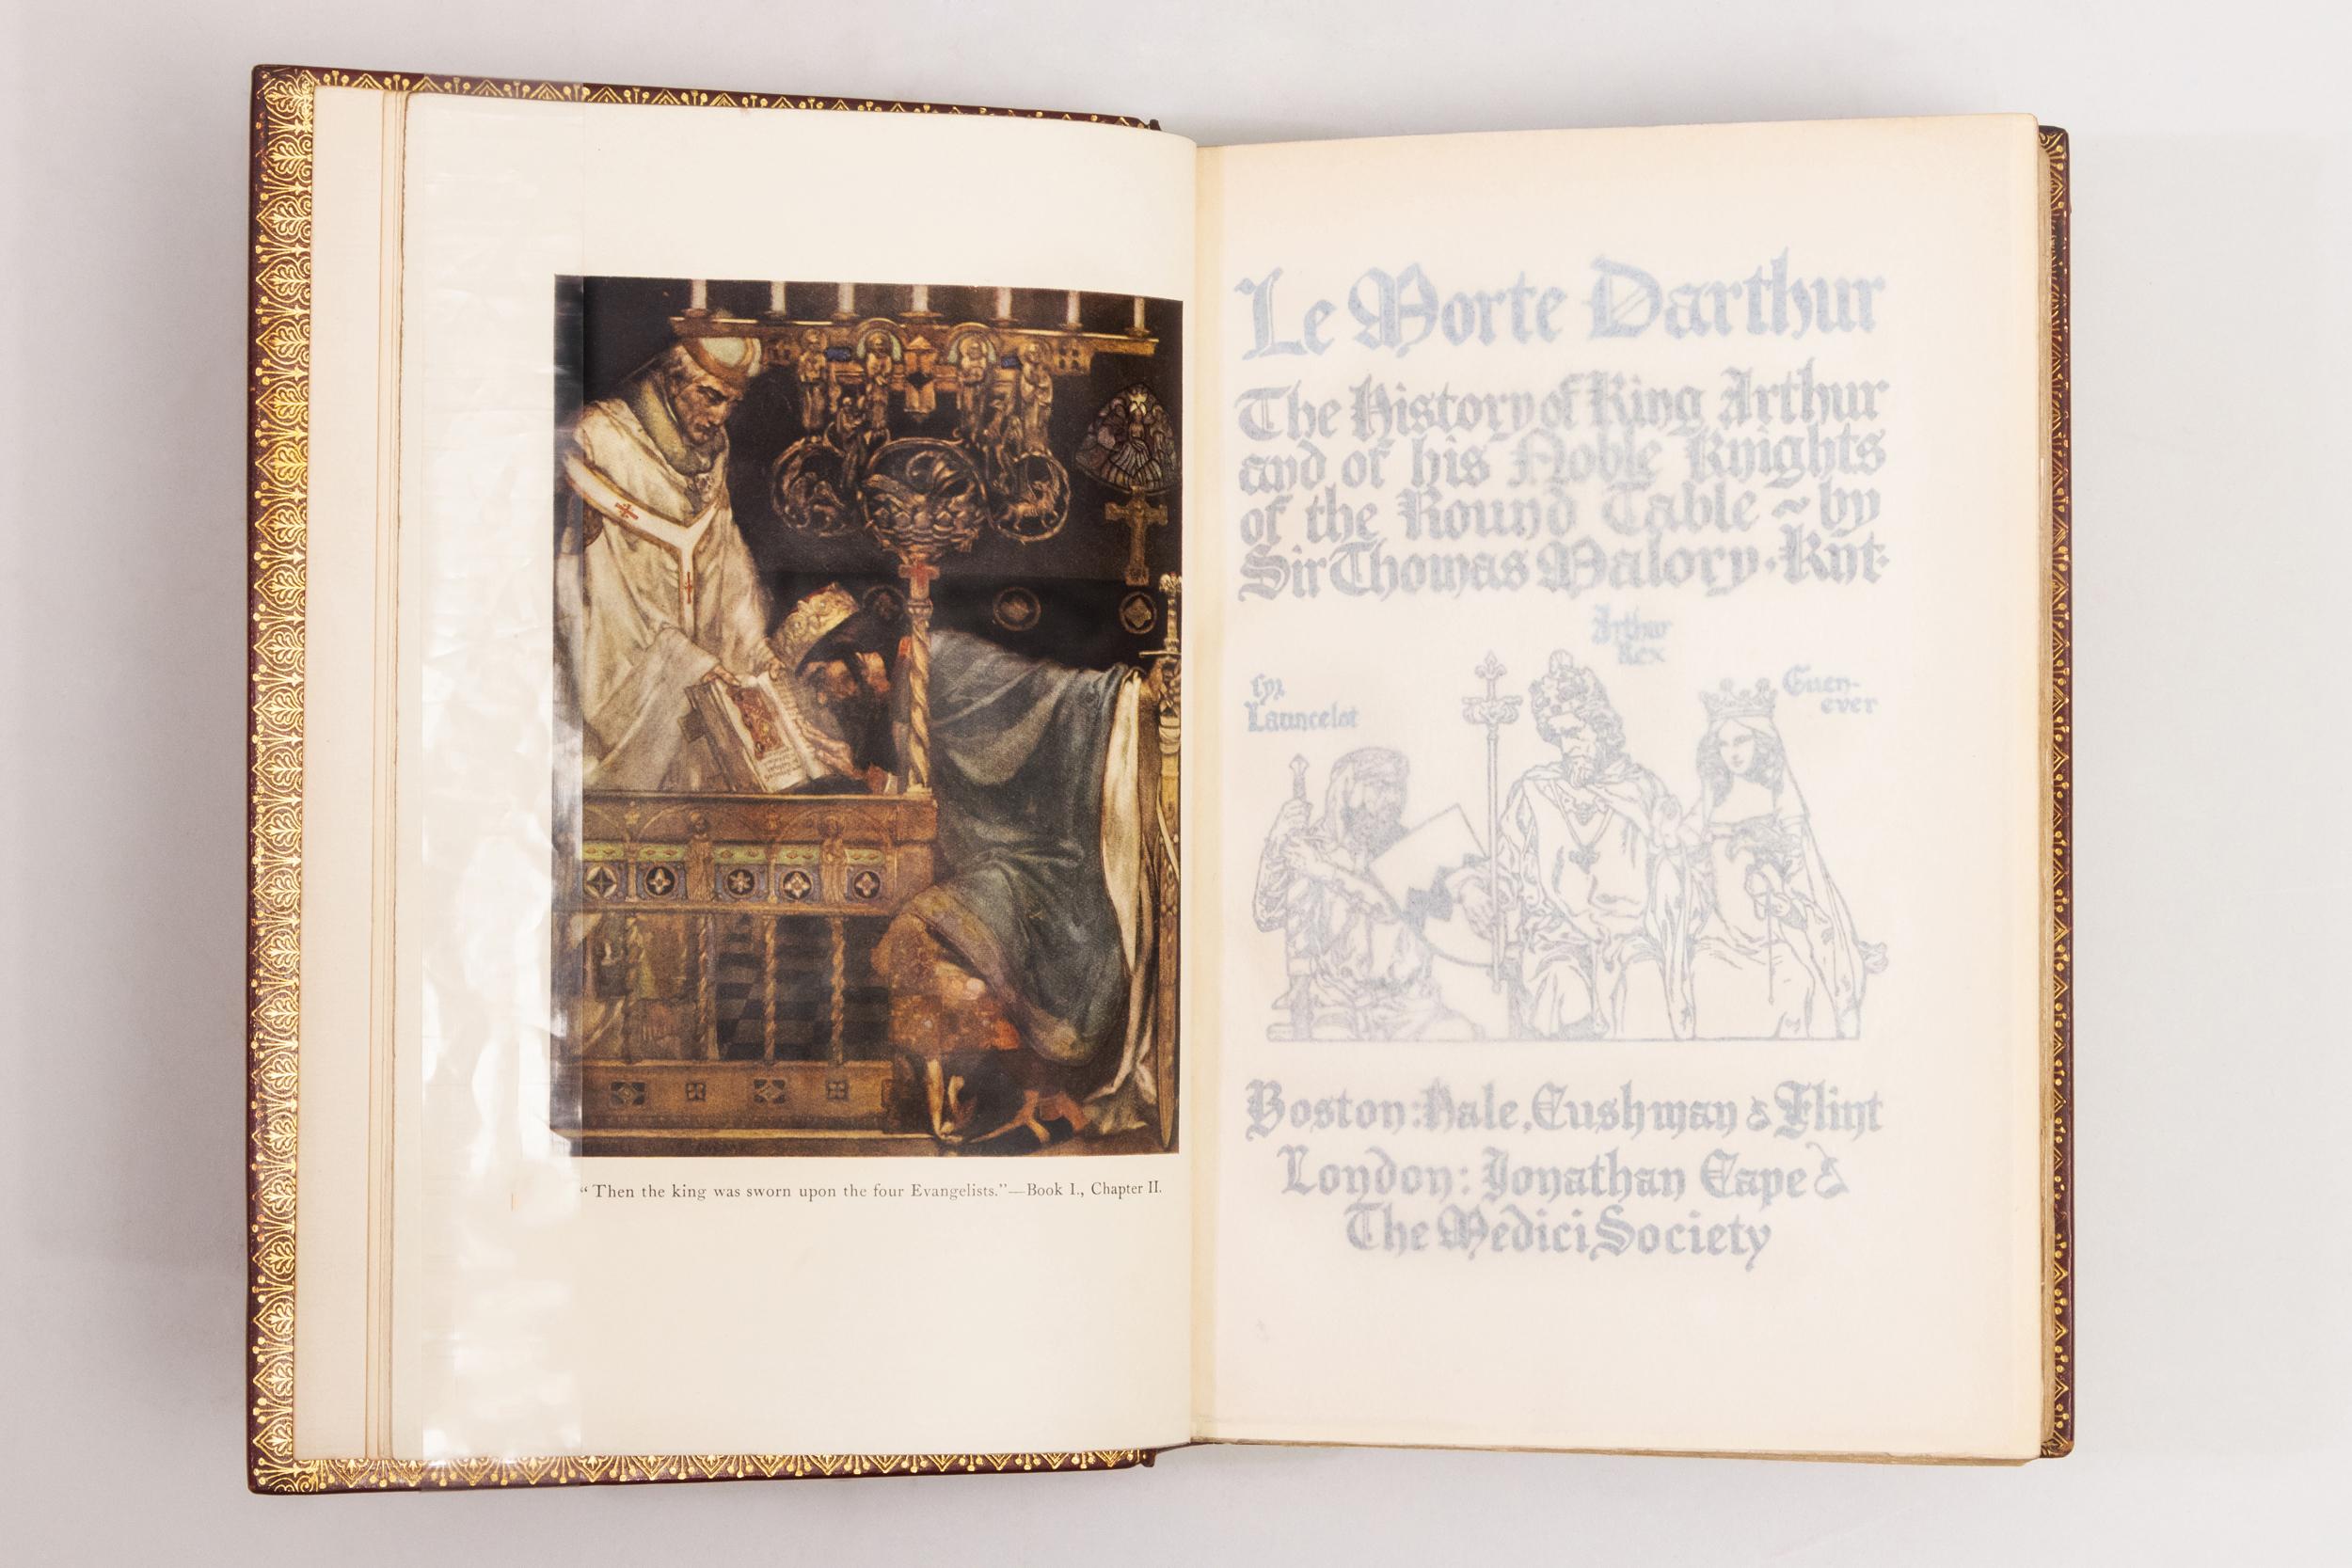 “Then the king was sworn upon the four Evangelists.”—Book I., Chapter II.
Le Morte Darthur
The History of King Arthur
and of his Noble Knights
of the Round Table ~ by
Sir Thomas Malory · Knt·
Arthur
Rex
Syr
Launcelot
Guen-
ever
Boston: Hale, Cushman & Flint
London: Jonathan Cape &
The Medici Society